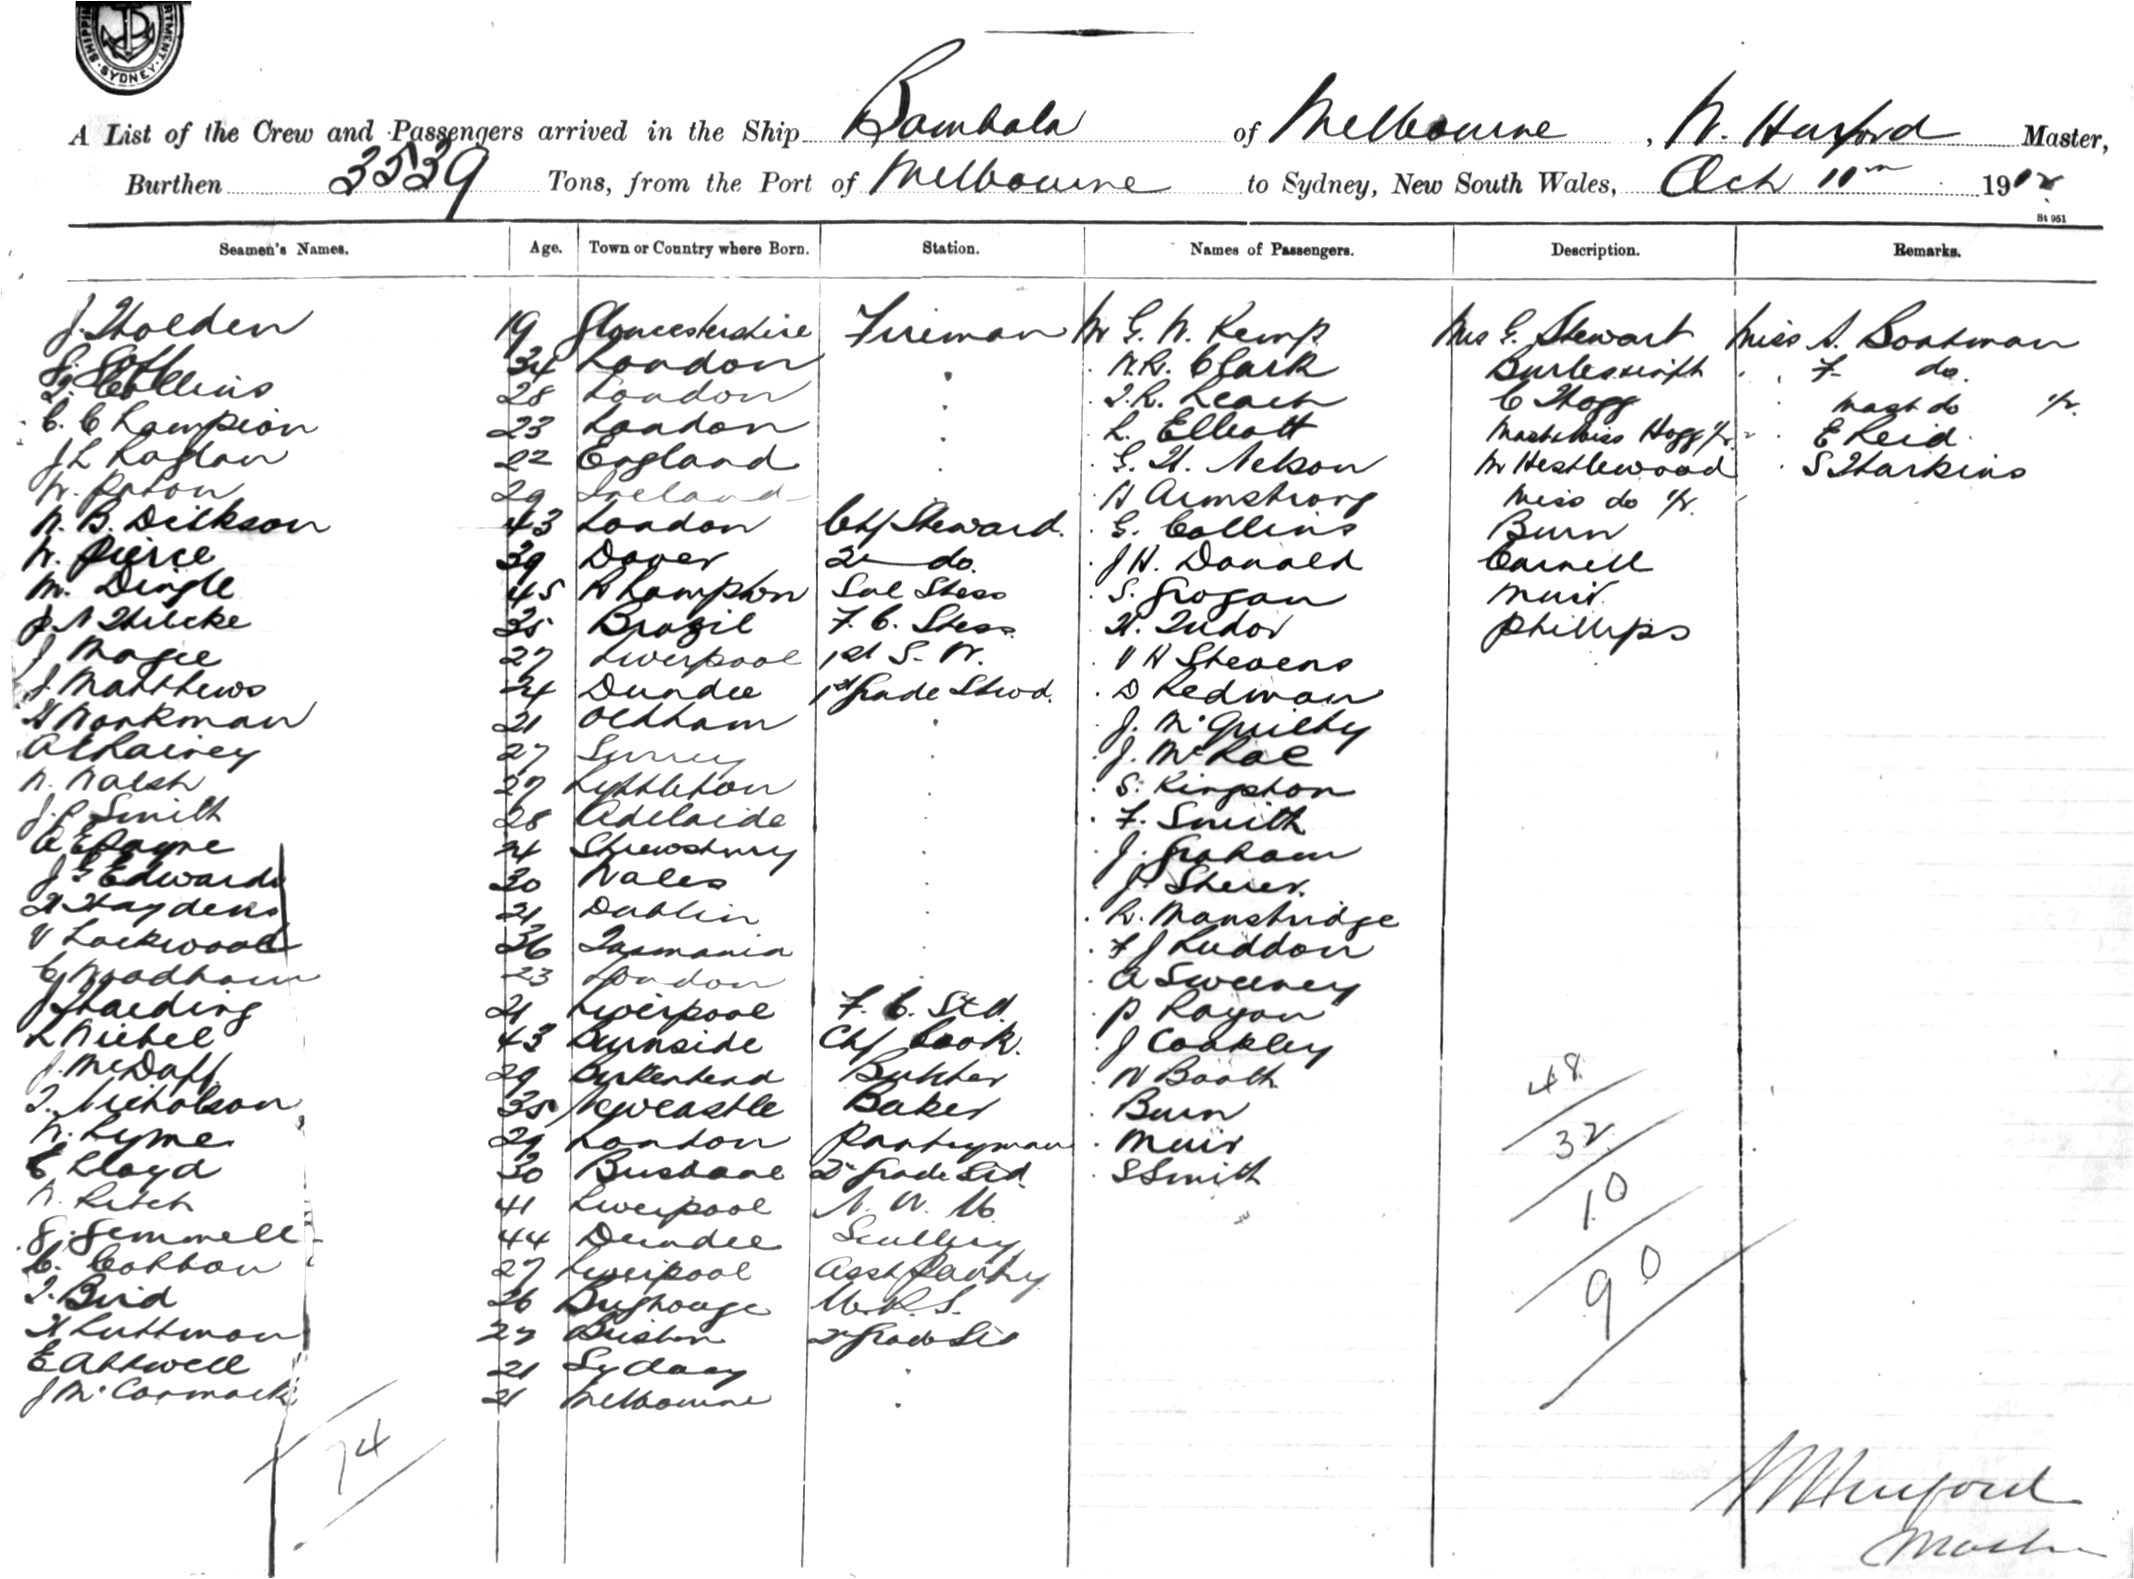 SHIPPING DEPARTMENT SYDNEY
A List of the Crew and Passengers arrived in the Ship Bombala of Melbourne, W. Hurford Master,
Burthen 3539 Tons, from the Port of Melbourne to Sydney, New South Wales, Oct 11th 1912
St 951
Seamen's Names. Age. Town or Country where Born. Station. Names of Passengers. Description. Remarks.
J. Holden 19 Gloucestershire Fireman Mr G. W. Kemp Mrs G. Stewart Miss A. Boatman
G. Goff 34 London " W.R. Clark Burleswith " F do.
J. Collins 28 London " T.R. Leach C Hogg " Mast do
C. Champion 23 London " L. Elliott Mast & Miss Hogg " E Reid
J L Raglan 22 England " G. H. Nelson Mr Hestlewood " S Harkins
W. Paton 29 Ireland H Armstrong Miss do
W. B. Dickson 43 London Chf Steward. G. Collins Burn
W. Pierce 39 Dover 2 do. J H. Donald Carnell
M. Dingle 45 Sal Stess S. Grogan Muir
35 Brazil F. C. Stess. H. Tudor Phillips
J Magee 27 Liverpool 1st S. W. V H Stevens
J Matthews 24 Dundee 1st Grade Stwd. D Redman
H Workman 21 Oldham " J. McGuilty
A E Rairey 27 Surrey " J. McRae
W. Walsh 27 Lyttleton " S. Kingston
J. P Smith 28 Adelaide " F. Smith
A E Payne 24 Shrewsbury " J. Graham
J G Edwards 30 Wales " J. Sherer.
H Haydens 21 Dublin " R. Manstridge
V Lockwood 36 Tasmania " F J Luddon
C Woodham 23 London " A Sweeney
J Harding 21 Liverpool F. C. Std. P Rayan
L Niebel 43 Burnside Chf Cook. J Coakley
J. McDaff 29 Birkenhead Butcher W Booth
T. Nicholson 35 Newcastle Baker Burn
W. Lyme 29 London Pantryman Muir
C Lloyd 30 Brisbane 2nd Grade Std S Smith
W. Ritch 41 Liverpool N. W. M.
G. Gemmell 44 Dundee Scullery
C. Cotton 27 Liverpool Asst Pantry
T. Bird 26 Brighouse M.R.S.
H Luttman 27 Brixton 2nd Grade Std
E Attwell 21 Sydney "
J McCormack 21 Melbourne "
48
32
10
90
74
W Hurford
Master